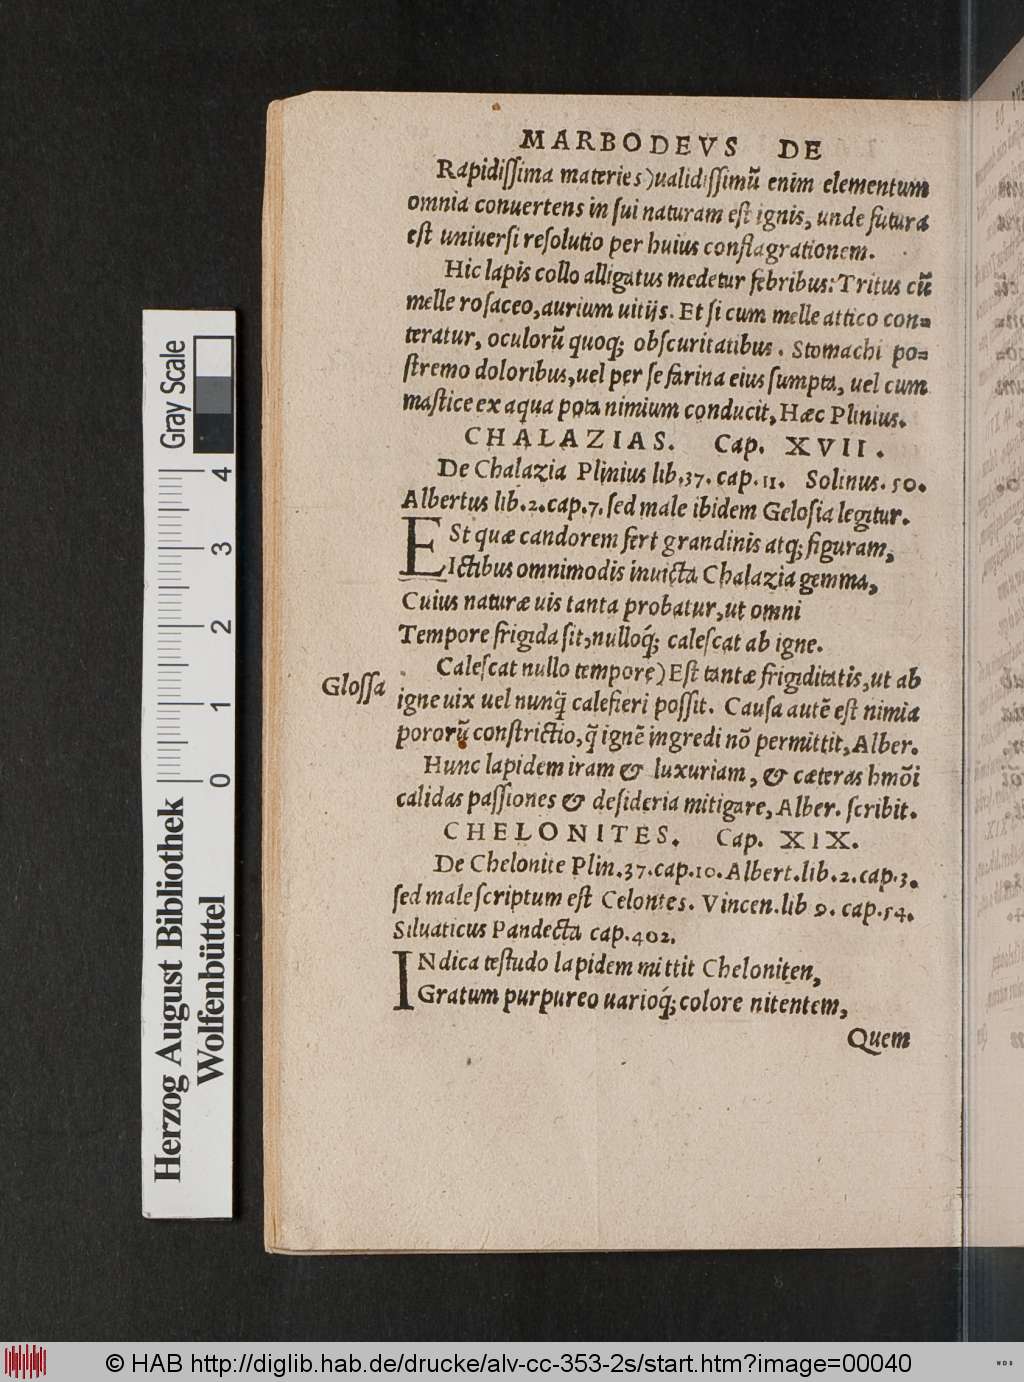 MARBODEVS DE
Rapidiſſima materies) ualidiſſimũ enim elementum
omnia conuertens in ſui naturam eſt ignis, unde futura
eſt uniuerſi reſolutio per huius conflagrationem.
Hic lapis collo alligatus medetur febribus: Tritus cũ
melle roſaceo, aurium uitijs. Et ſi cum melle attico con=
teratur, oculorũ quoq; obſcuritatibus. Stomachi po=
ſtremo doloribus, uel per ſe farina eius ſumpta, uel cum
maſtice ex aqua pota nimium conducit, Hæc Plinius.
CHALAZIAS. Cap. XVII.
De Chalazia Plinius lib. 37. cap. 11. Solinus. 50.
Albertus lib. 2. cap. 7. ſed male ibidem Geloſia legitur.
ESt quæ candorem fert grandinis atq; figuram,
Ictibus omnimodis inuicta Chalazia gemma,
Cuius naturæ uis tanta probatur, ut omni
Tempore frigida ſit, nulloq́; caleſcat ab igne.
Gloſſa
Caleſcat nullo tempore) Eſt tantæ frigiditatis, ut ab
igne uix uel nunq̃ calefieri poſſit. Cauſa autē eſt nimia
pororũ conſtrictio, q̃ ignē ingredi nō permittit, Alber.
Hunc lapidem iram & luxuriam, & cæteras hmōi
calidas paſſiones & deſideria mitigare, Alber. ſcribit.
CHELONITES. Cap. XIX.
De Chelonite Plin. 37. cap. 10. Albert. lib. 2. cap. 3.
ſed male ſcriptum eſt Celontes. Vincen. lib 9. cap. 54.
Siluaticus Pandecta cap. 402.
INdica teſtudo lapidem mittit Cheloniten,
Gratum purpureo uarioq́; colore nitentem,
Quem
Gray Scale
4
3
2
1
0
Herzog August Bibliothek
Wolfenbüttel
© HAB http://diglib.hab.de/drucke/alv-cc-353-2s/start.htm?image=00040